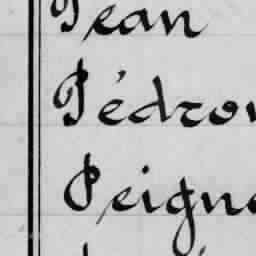 Pean
Pédro
Peign